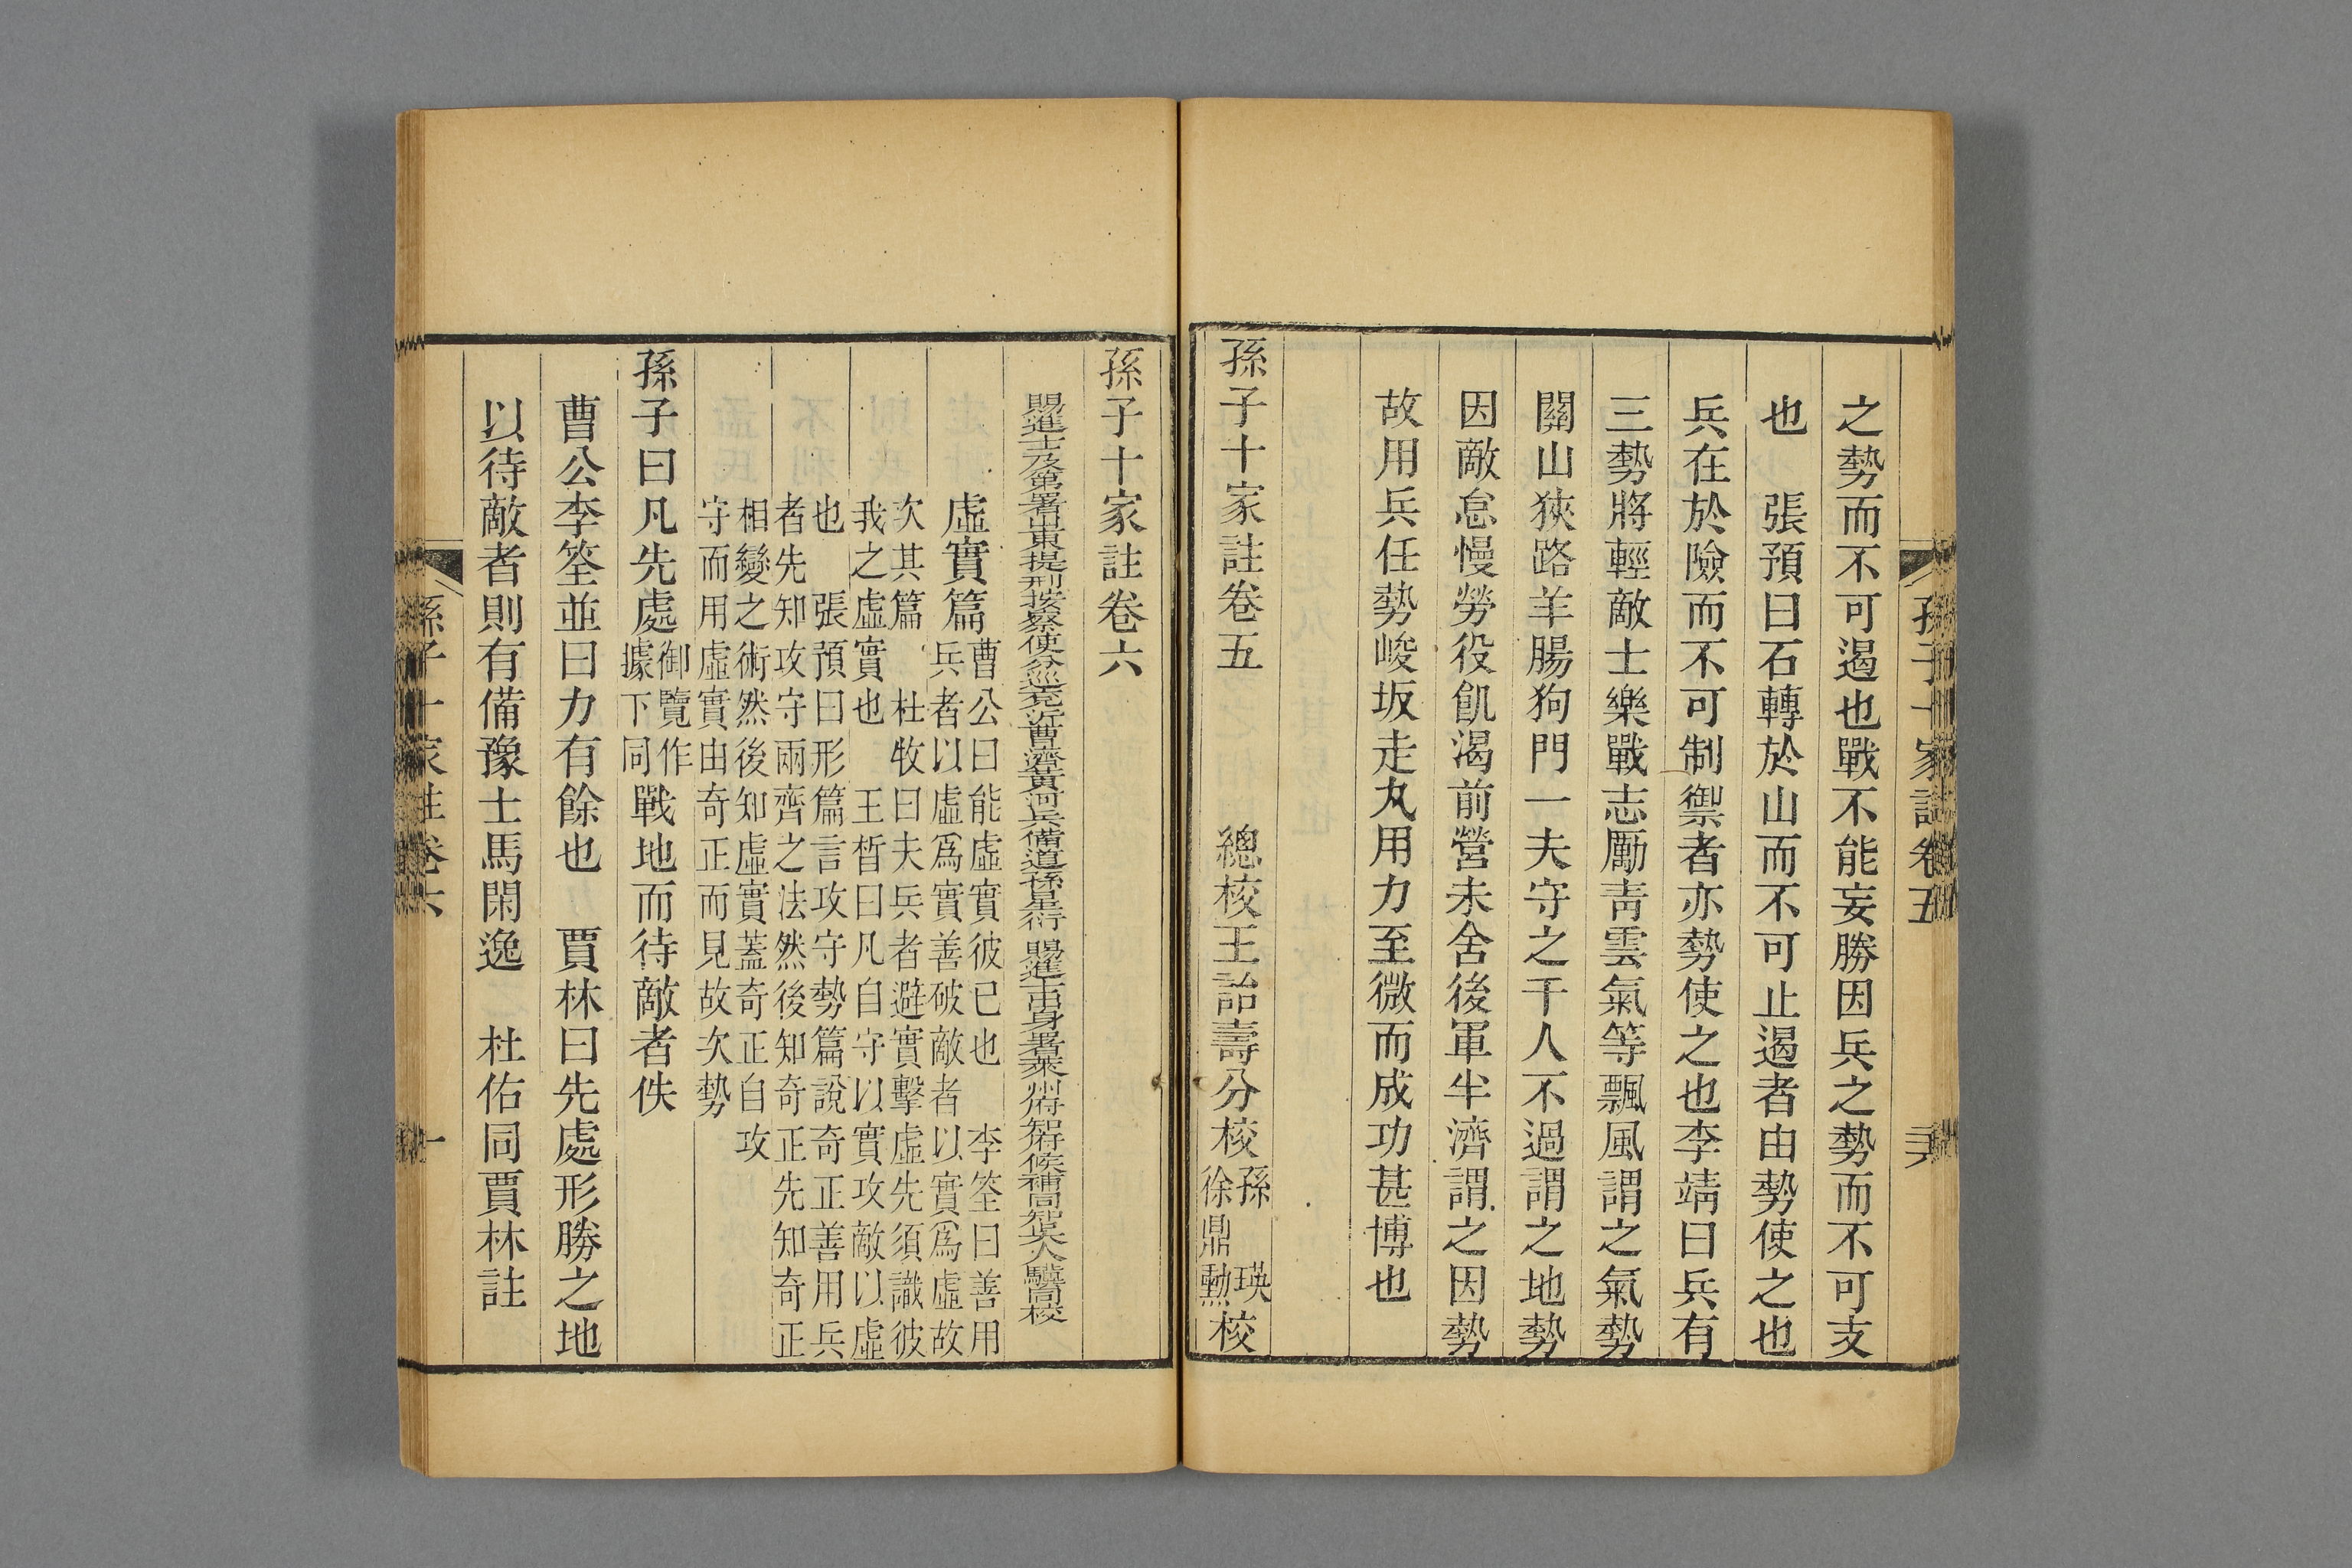 孫子十家註卷五
之勢而不可遏也戰不能妄勝因兵之勢而不可支
也　張預曰石轉於山而不可止遏者由勢使之也
兵在於險而不可制禦者亦勢使之也李靖曰兵有
三勢將輕敵士樂戰志厲靑雲氣等飄風謂之氣勢
關山狹路羊腸狗門一夫守之千人不過謂之地勢
因敵怠慢勞役飢渴前營未舍後軍半濟謂之因勢
故用兵任勢峻坂走丸用力至微而成功甚博也
孫子十家註卷五　　　總校王詒壽分校孫瑛徐鼎勳校
孫子十家註卷六
賜進士及第署山東提刑按察使分巡兖沂曹濟黃河兵備道孫星衍　賜進士出身署萊州府知府候補同知吳人驥同校
虛實篇
曹公曰能虛實彼已也　李筌曰善用
兵者以虛爲實善破敵者以實爲虛故
次其篇　杜牧曰夫兵者避實擊虛先須識彼
我之虛實也　王晳曰凡自守以實攻敵以虛
也　張預曰形篇言攻守勢篇說奇正善用兵
者先知攻守兩齊之法然後知奇正先知奇正
相變之術然後知虛實蓋奇正自攻
守而用虛實由奇正而見故次勢
孫子曰凡先處
御覽作
據下同
戰地而待敵者佚
曹公李筌並曰力有餘也　賈林曰先處形勝之地
以待敵者則有備豫士馬閑逸　杜佑同賈林註
孫子十家註卷六　一